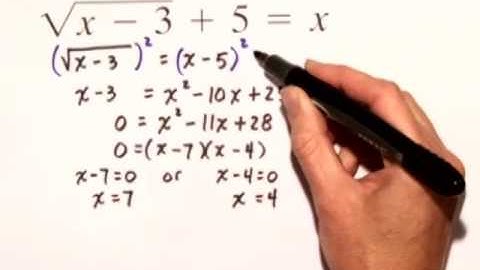 √(x − 3) + 5 = x
(√(x − 3))² = (x − 5)²
x − 3 = x² − 10x + 2
0 = x² − 11x + 28
0 = (x − 7)(x − 4)
x − 7 = 0 or x − 4 = 0
x = 7 x = 4